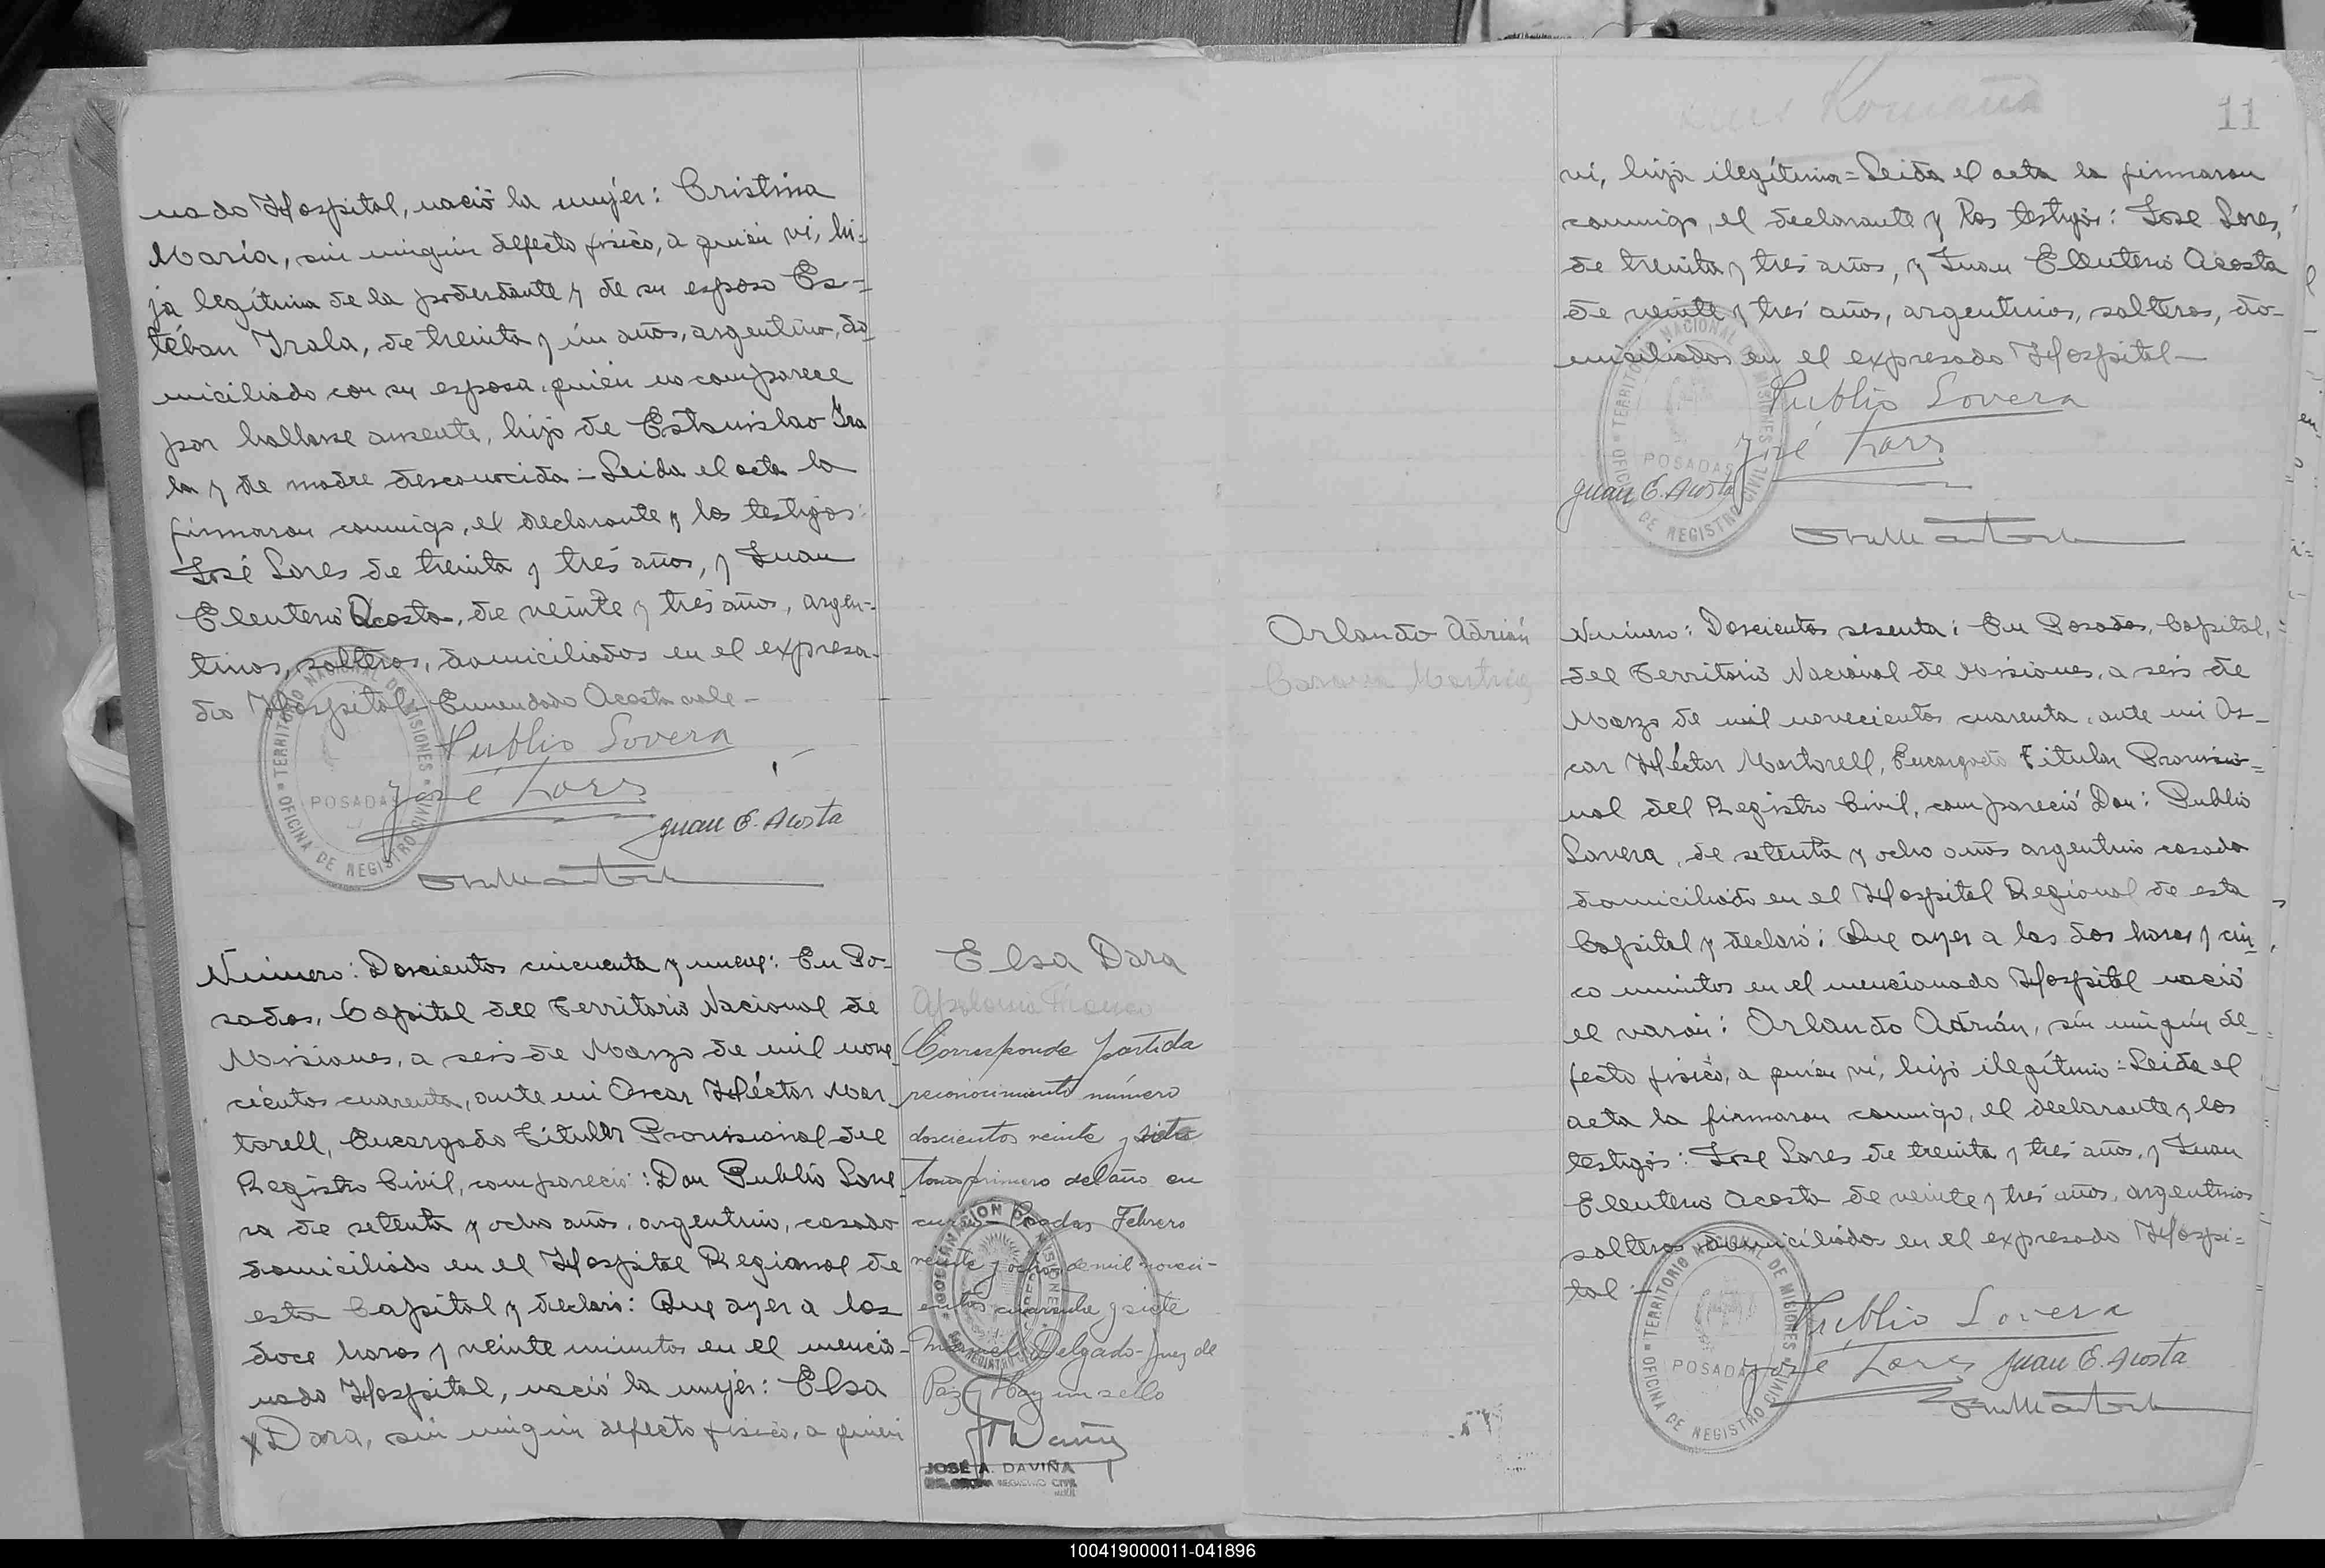 nado Hospital, nació la mujer: Cristina
María, sin ningún defecto físico, a quien vi, hi-
ja legítima de la poderdante y de su esposo Es-
téban Irala, de treinta y ún años, argentino, do-
miciliado con su esposa, quién no comparece
por hallarse ausente, hijo de Estanislao Ira
la y de madre desconocida = Leida el acta la
firmaron conmigo, el declarante y los testigos:
José Lares de treinta y tres años, y Juan
Eleuterio Acosta, de veinte y tres años, argen-
tinos, solteros, domiciliados en el expresa-
do Hospital - Enmendado Acosta vale -
Publio Lovera
José Lares
Juan E. Acosta
TERRITORIO NACIONAL DE MISIONES
OFICINA DE REGISTRO CIVIL
POSADAS
Número: Doscientos cincuenta y nueve: En Po-
sadas, Capital del Territorio Nacional de
Misiones, a seis de Marzo de mil nove-
cientos cuarenta, ante mi Oscar Héctor Mar-
torell, Encargado Titular Provisional del
Registro Civil, compareció: Don Publio Love-
ra de setenta y ocho años, argentino, casado
domiciliado en el Hospital Regional de
esta Capital y declaró: Que ayer a las
doce horas y veinte minutos en el mencio-
nado Hospital, nació la mujer: Elsa
X Dara, sin ningún defecto físico, a quien
Elsa Dara
Apolonia Franco
Corresponde partida
reconocimiento número
doscientos veinte y siete
tomo primero del año en
curso - Posadas Febrero
veinte y ocho de mil noveci-
entos cuarenta y siete
Manuel Delgado - Juez de
Paz - Hay un sello
GOBERNACION DE MISIONES
JOSÉ A. DAVIÑA
11
Romaña
vi, hija ilegítima = Leida el acta la firmaron
conmigo, el declarante y los testigos: José Lares,
de treinta y tres años, y Juan Eleuterio Acosta
de veinte y tres años, argentinos, solteros, do-
miciliados en el expresado Hospital -
Publio Lovera
José Lares
Juan E. Acosta
TERRITORIO NACIONAL DE MISIONES
OFICINA DE REGISTRO CIVIL
POSADAS
Orlando Adrián
Número: Doscientos sesenta: En Posadas, Capital,
del Territorio Nacional de Misiones, a seis de
Marzo de mil novecientos cuarenta, ante mi Os-
car Héctor Martorell, Encargado Titular Provisio-
nal del Registro Civil, compareció Don: Publio
Lovera, de setenta y ocho años argentino casado
domiciliado en el Hospital Regional de esta
Capital y declaró: Que ayer a las dos horas y cin-
co minutos en el mencionado Hospital nació
el varón: Orlando Adrián, sin ningún de-
fecto físico, a quien vi, hijo ilegítimo = Leida el
acta la firmaron conmigo, el declarante y los
testigos: José Lares de treinta y tres años, y Juan
Eleuterio Acosta de veinte y tres años, argentinos
solteros domiciliados en el expresado Hospi-
tal -
Publio Lovera
José Lares Juan E. Acosta
TERRITORIO NACIONAL DE MISIONES
OFICINA DE REGISTRO CIVIL
POSADAS
100419000011-041896